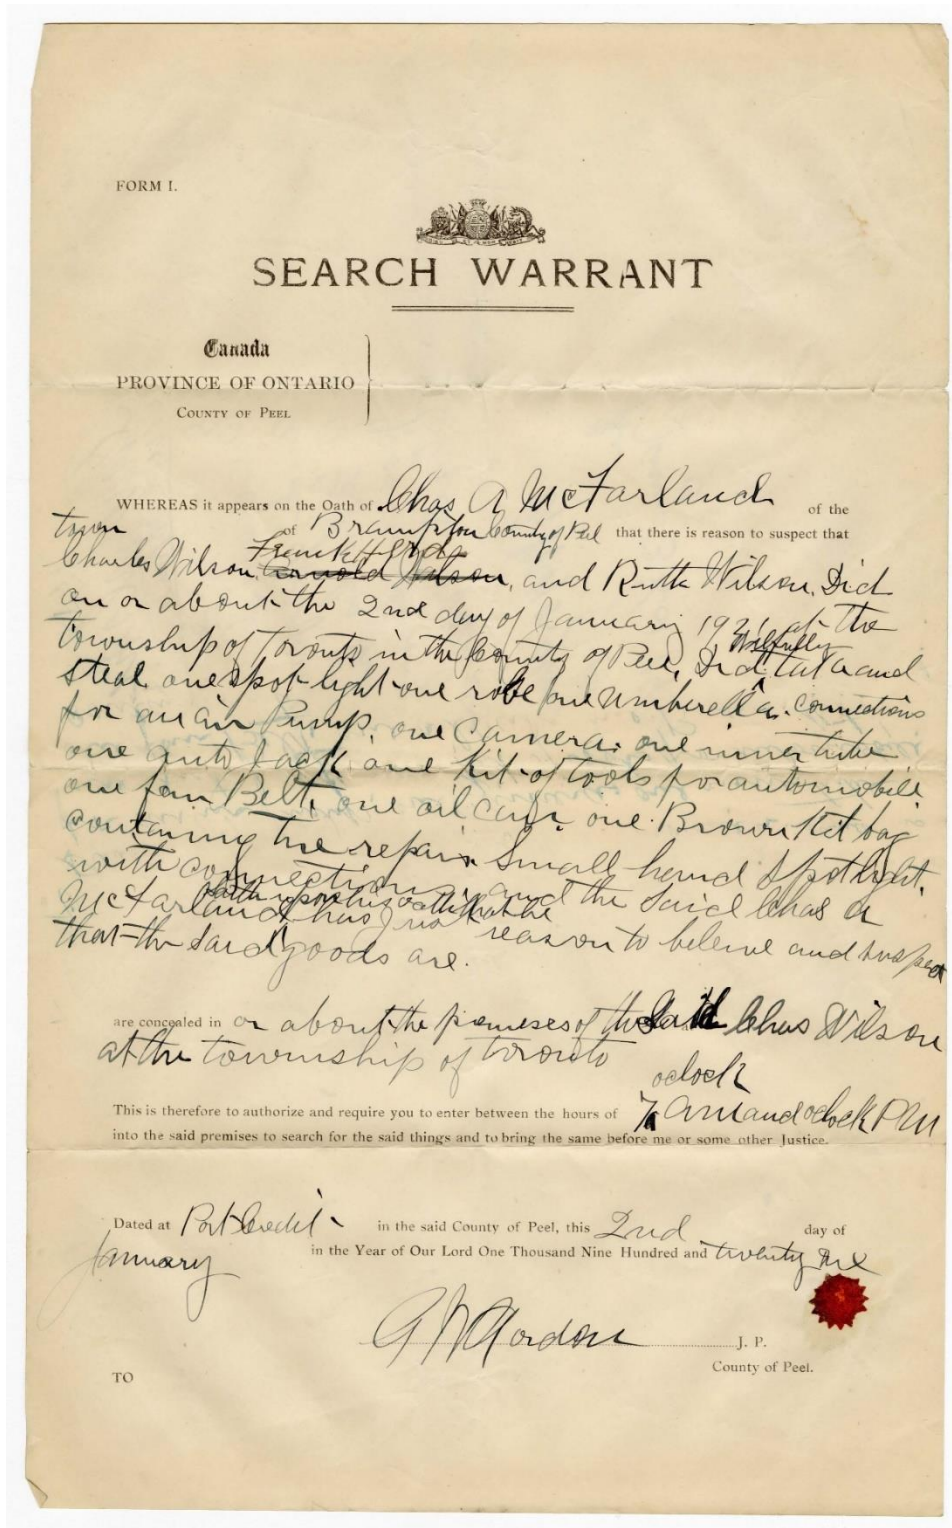 FORM I.
SEARCH WARRANT
Canada
PROVINCE OF ONTARIO
COUNTY OF PEEL
WHEREAS it appears on the Oath of Chas A McFarland of the
town of Brampton County of Peel that there is reason to suspect that
Frank Herd
Charles Wilson, Arnold Watson, and Ruth Wilson, Did
on or about the 2nd day of January 1921 at the
Wilfully
township of toronto in the County of Peel, Did take and
steal one spot light one robe one Umberella. connections
for an air Pump, one Camera. one inner tube
one auto Jack one Kit of tools for automobile
one fan Belt, one oil can, one Brown Kit bag
contaning tire repair. Small hand Spotlight.
with connections and the Said Chas A
upon his oath that he
McFarland has reason to beleive and suspect
that the Said goods are.
are concealed in or about the premeses of the Said Chas Wilson
at the township of toronto
oclock
This is therefore to authorize and require you to enter between the hours of 7 AM and oclock PM
into the said premises to search for the said things and to bring the same before me or some other Justice.
Dated at Port Credit in the said County of Peel, this 2nd day of
January in the Year of Our Lord One Thousand Nine Hundred and twenty one
Gordon J. P.
County of Peel.
TO